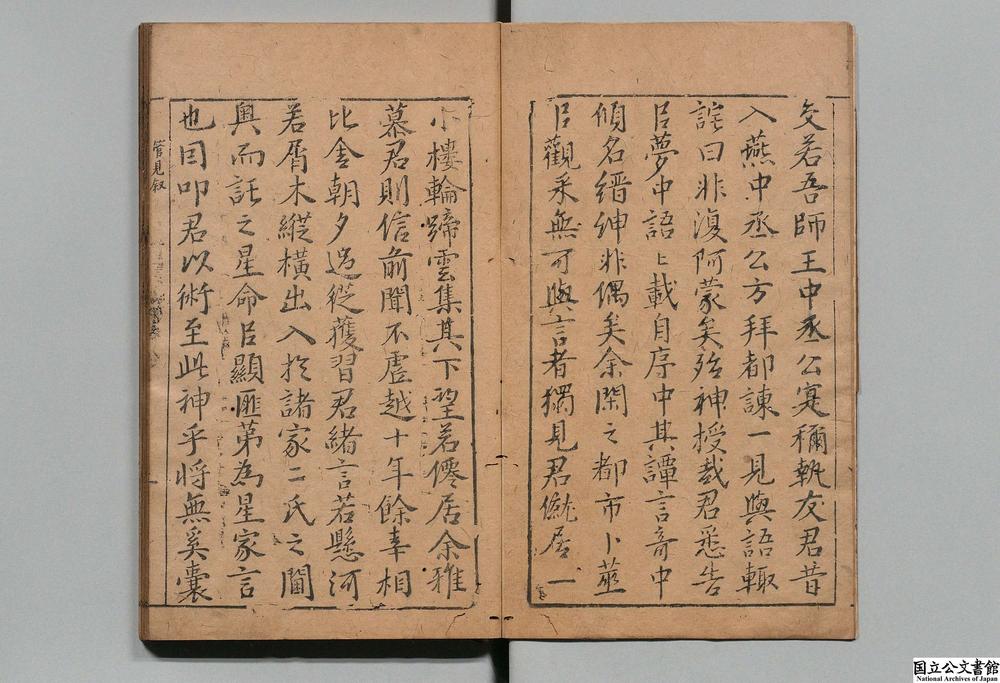 交若吾師王中丞公寔稱執友君昔
入燕中丞公方拜都諫一見與語輙
詫曰非復阿蒙矣殆神授哉君悉告
㠯夢中語〻載自序中其譚言竒中
傾名縉紳非偶矣余閑之都市卜筮
㠯觀釆無可與言者獨見君僦居一
小樓輪蹄雲集其下望若僊居余雅
慕君則信前聞不虛越十年餘幸相
比舍朝夕過從獲習君緒言若懸河
若屑木縱橫出入於諸家二氏之閫
奥而託之星命㠯顯匪第為星家言
也因叩君以術至此神乎將無奚囊
管見叙
国立公文書館
National Archives of Japan